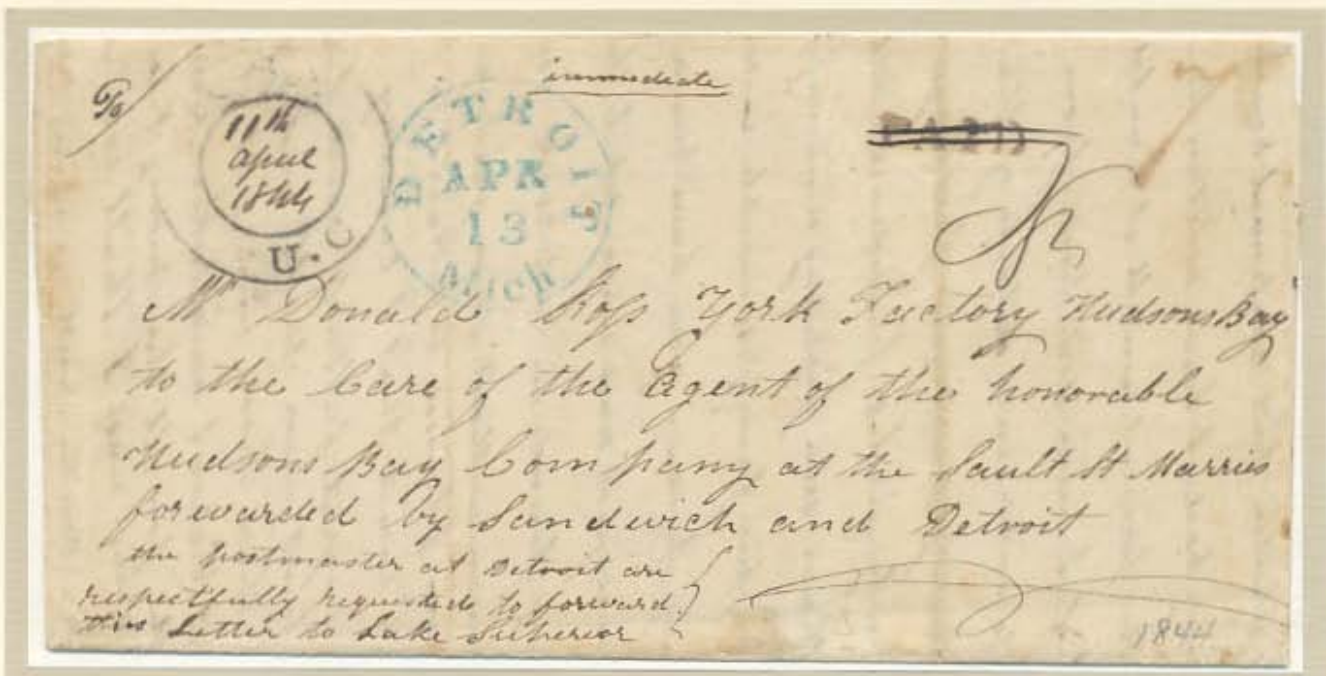 immediate
11th
April
1844
U.C
DETROIT
APR
13
Mich
PAID
Mr Donald Ross York Factory Hudsons Bay
to the Care of the Agent of the honorable
Hudsons Bay Company at the Sault St Marries
forwarded by Sandwich and Detroit
the postmaster at Detroit are
respectfully requested to forward
this Letter to Lake Superior
1844